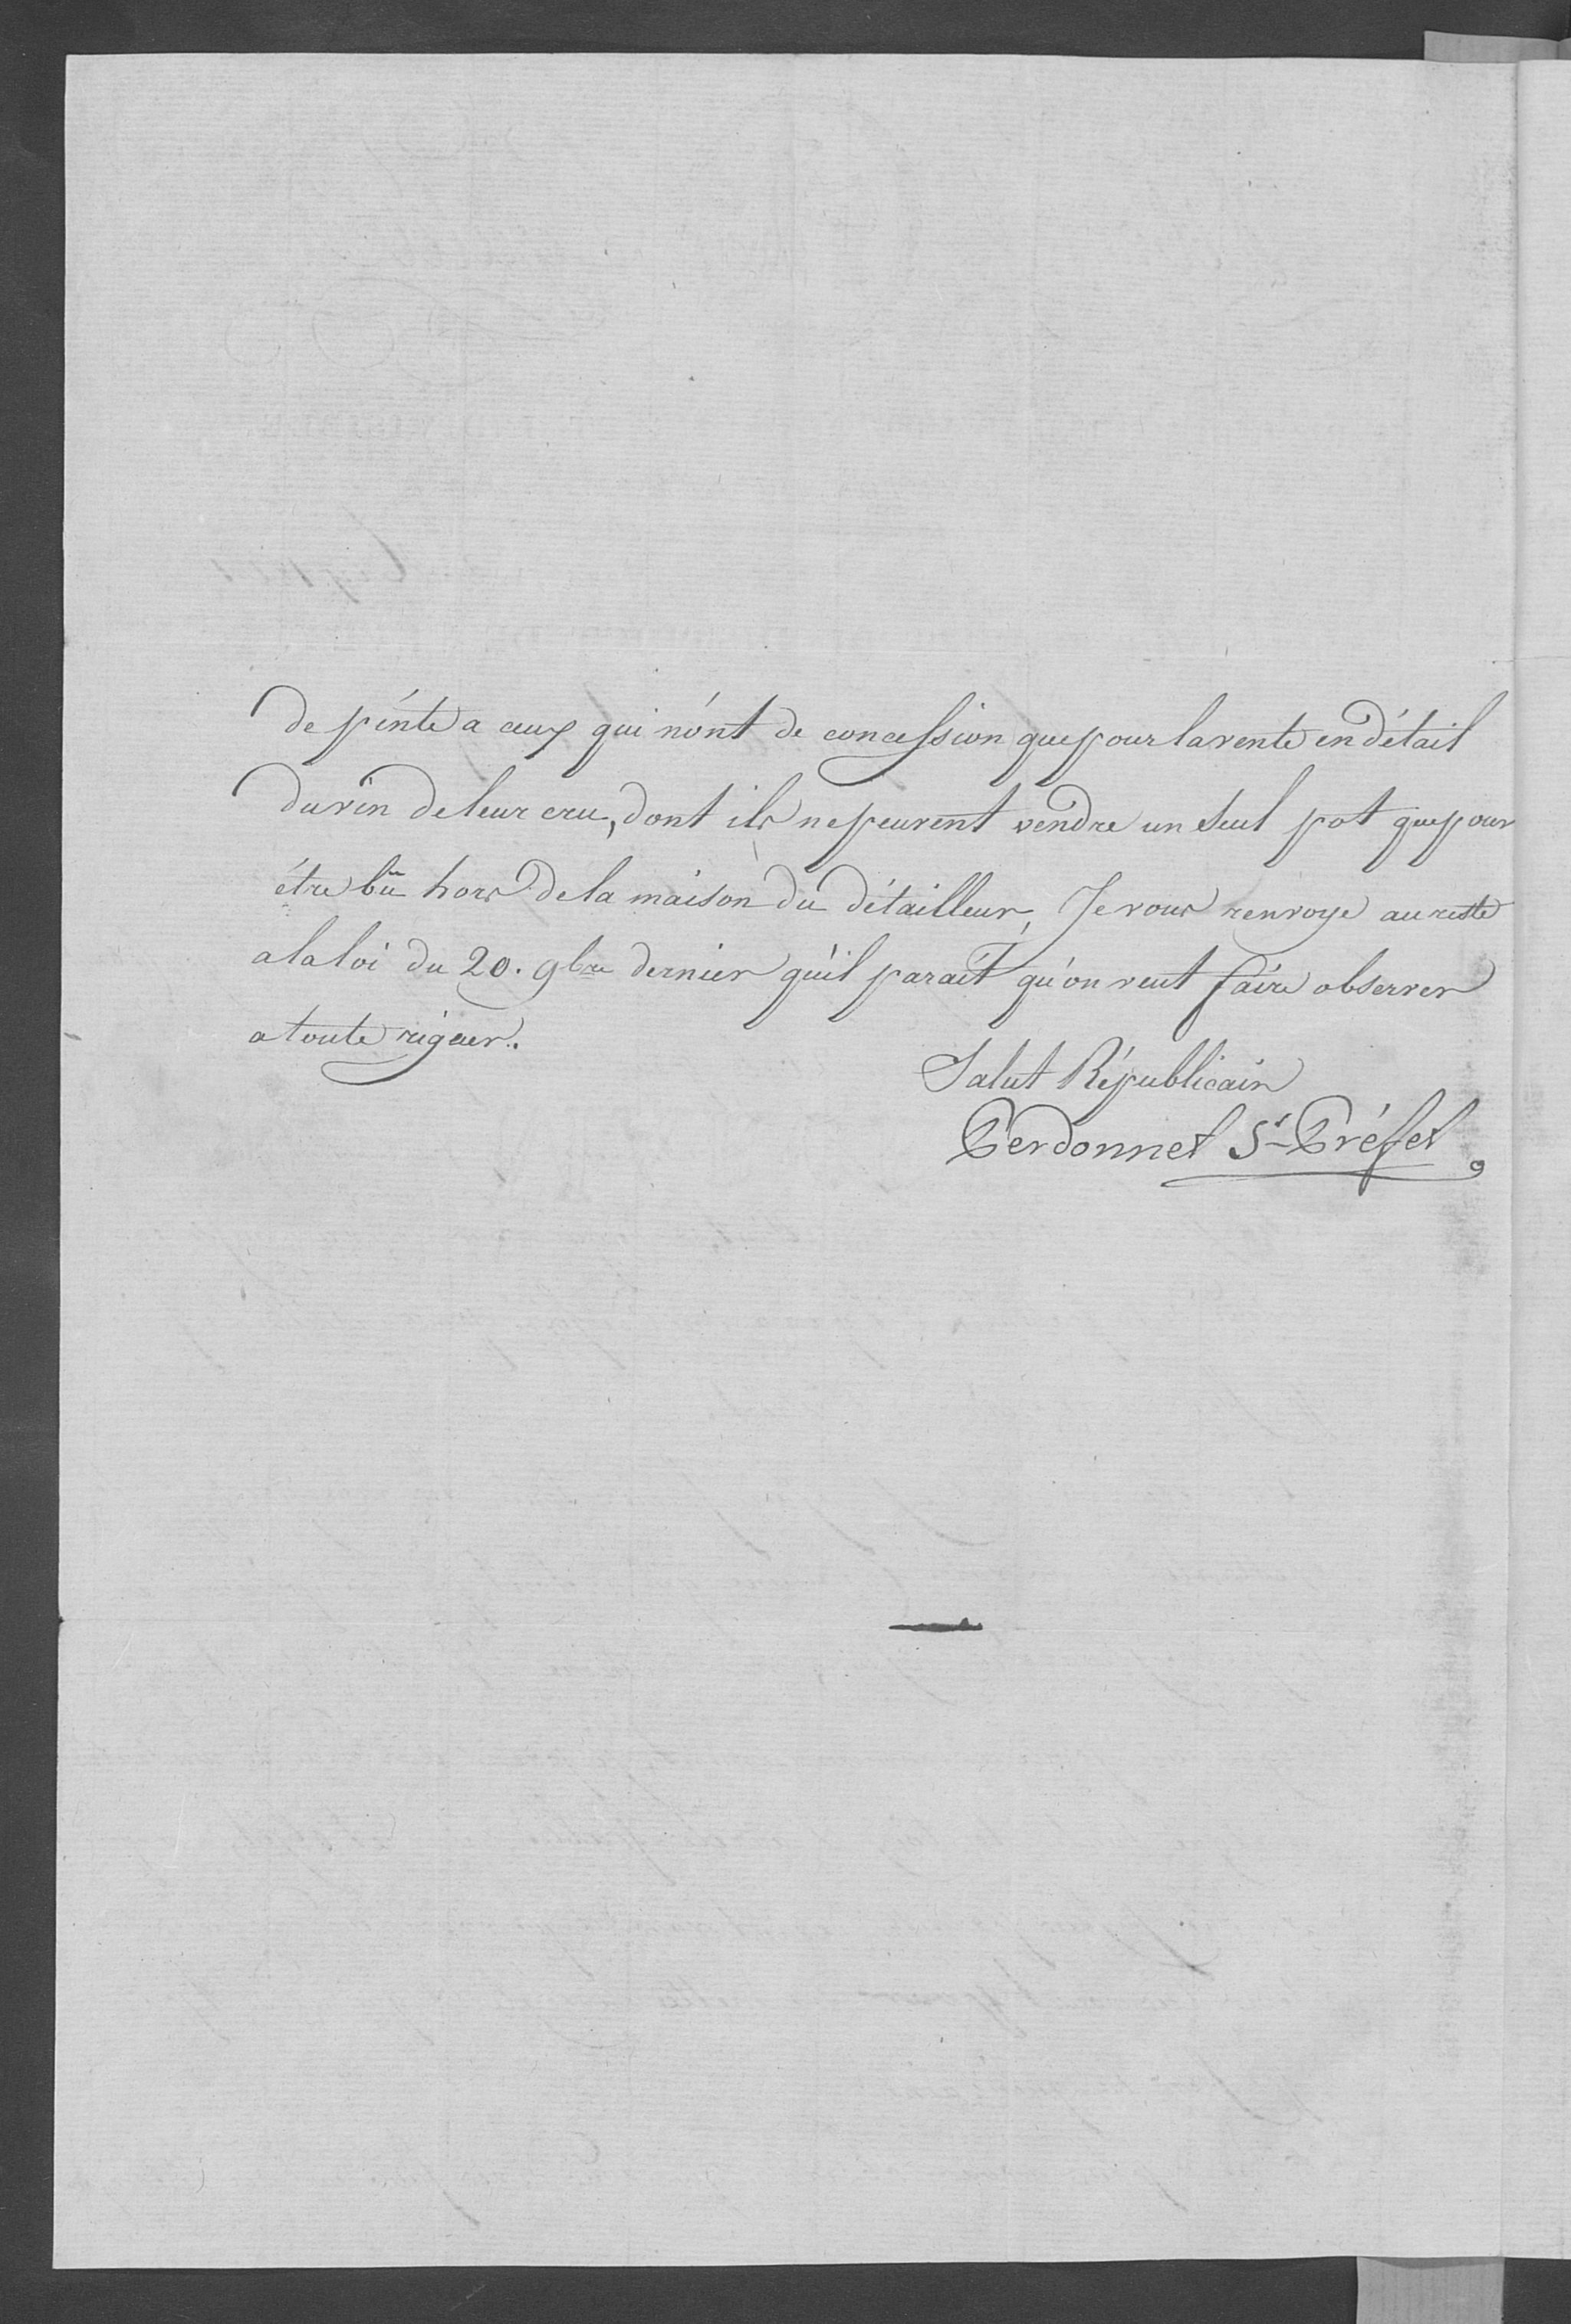 de pinte a ceux qui n'ont de concession que pour la vente en détail
du vin de leur cru, dont ils ne peuvent vendre un seul pot que pour
être bû hors de la maison du détailleur, Je vous renvoye au reste
a la loi du 20. 9bre dernier qu'il parait qu'on veut faire observer
a toute rigeur.
Salut Républicain
Perdonnet Ss-Préfet